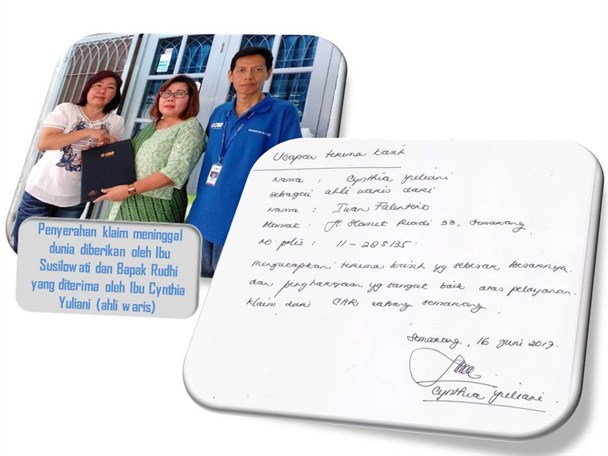 Penyerahan klaim meninggal
dunia diberikan oleh Ibu
Susilowati dan Bapak Rudhi
yang diterima oleh Ibu Cynthia
Yuliani (ahli waris)
Ucapan terima kasih
Nama : Cynthia Yuliani
sebagai ahli waris dari
Nama : Iwan
Alamat : Jl Slamet Riadi 33, Semarang
No polis : 11-285135
mengucapkan terima kasih yg sebesar besarnya
dan penghargaan yg sangat baik atas pelayanan
klaim dari CAR cabang Semarang
Semarang, 16 Juni 2017
Cynthia Yuliani